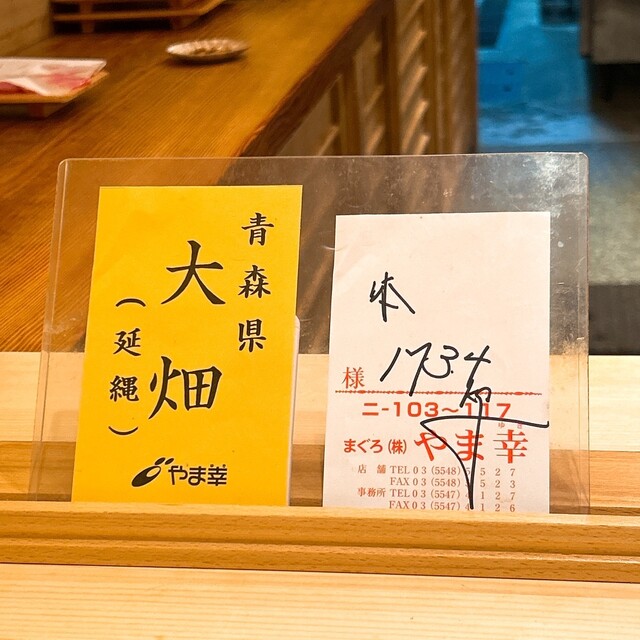 青森県
大畑
（延縄）
やま幸
173.4
様
ニ-103〜117
まぐろ（株）やま幸
店舗 TEL 03(5548)5527
FAX 03(5548)5523
事務所 TEL 03(5547)4127
FAX 03(5547)4126